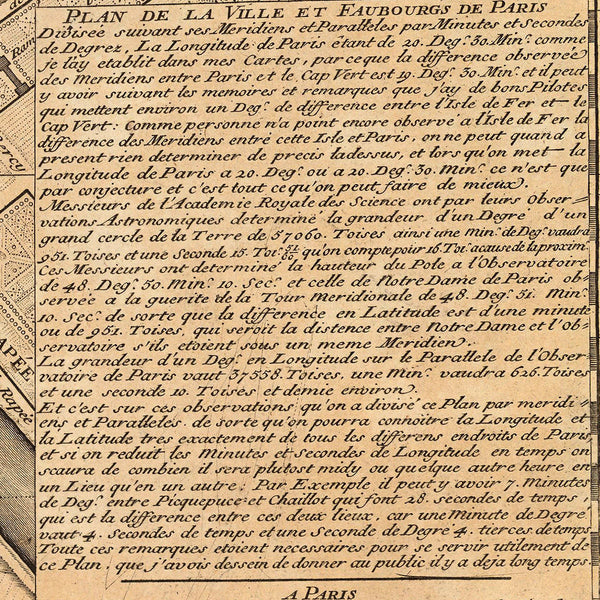 Ran
Bercy
APÉE
Rapée
PLAN DE LA VILLE ET FAUBOURGS DE PARIS
Divisée suivant ses Meridiens et Paralleles par Minutes et Secondes
de Degrez, La Longitude de Paris étant de 20. Deg.s 30. Min.s comme
je l'ay etablit dans mes Cartes, parceque la difference observée
des Meridiens entre Paris et le Cap Vert est 19. Deg.s 30. Min.s et il peut
y avoir suivant les memoires et remarques que j'ay de bons Pilotes
qui mettent environ un Deg.é de difference entre l'Isle de Fer et le
Cap Vert: Comme personne n'a point encore observé a l'Isle de Fer la
difference des Meridiens entré cette Isle et Paris, on ne peut quand a
present rien determiner de precis ladessus, et lors qu'on met la
Longitude de Paris a 20. Deg.s ou a 20. Deg.s 30. Min.s ce n'est que
par conjecture et c'est tout ce qu'on peut faire de mieux.
Messieurs de l'Academie Royale des Science ont par leurs Obser-
vations Astronomiques determiné la grandeur d'un Degré d'un
grand cercle de la Terre de 57060. Toises ainsi une min.e de Deg.é vaudra
951. Toises et une Seconde 15. Toi.s 51/60 qu'on compte pour 16. Toi.s acause de la proxim.
Ces Messieurs ont determiné la hauteur du Pole a l'Observatoire
de 48. Deg.s 50. Min.s 10. Sec.s et celle de Notre Dame de Paris ob-
servée a la guerite de la Tour Meridionale de 48. Deg.s 51. Min.s
10. Sec.s de sorte que la difference en Latitude est d'une minute
ou de 951. Toises, qui seroit la distence entre Notre Dame et l'Ob-
servatoire s'ils étoient sous un meme Meridien.
La grandeur d'un Deg.é en Longitude sur le Parallele de l'Obser-
vatoire de Paris vaut 37558. Toises, une Min.e vaudra 626. Toises
et une seconde 10. Toises et demie environ.
Et c'est sur ces observations qu'on a divisé ce Plan par meridi-
ens et Paralleles. de sorte qu'on pourra connoitre la Longitude et
la Latitude tres exactement de tous les differens endroits de Paris,
et si on reduit les Minutes et Secondes de Longitude en temps on
scaura de combien il sera plutost midy ou quelque autre heure en
un Lieu qu'en un autre. Par Exemple il peut y avoir 7. Minutes
de Deg.é entre Picquepuce et Chaillot qui font 28. secondes de temps,
qui est la difference entre ces deux lieux, car une Minute de Degré
vaut 4. Secondes de temps et une Seconde de Degré 4. tierces de temps
Toute ces remarques etoient necessaires pour se servir utilement de
ce Plan, que j'avois dessein de donner au public il y a deja long temps.
A PARIS